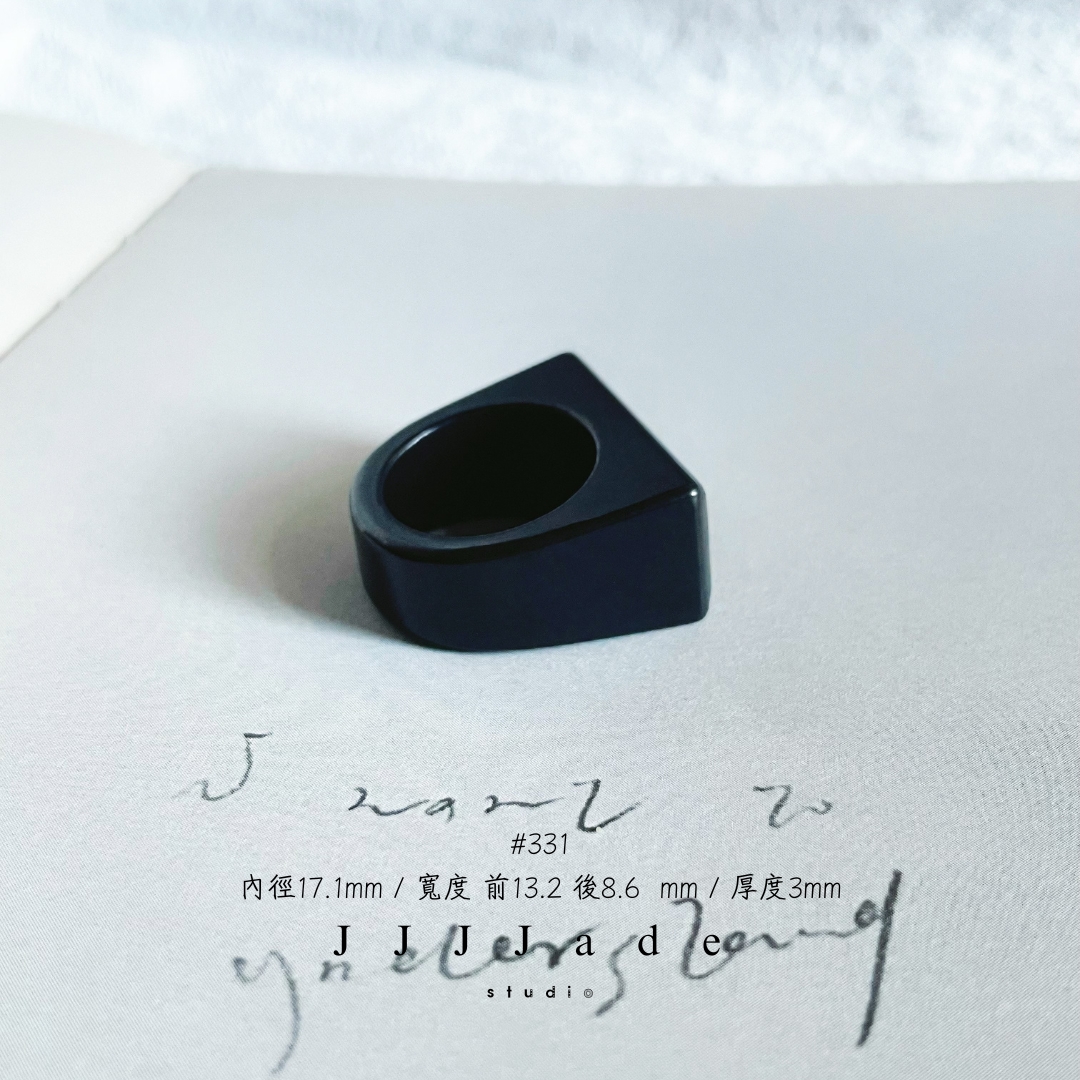 I want to
#331
內徑17.1mm / 寬度 前13.2 後8.6 mm / 厚度3mm
understand
JJJJade
studio